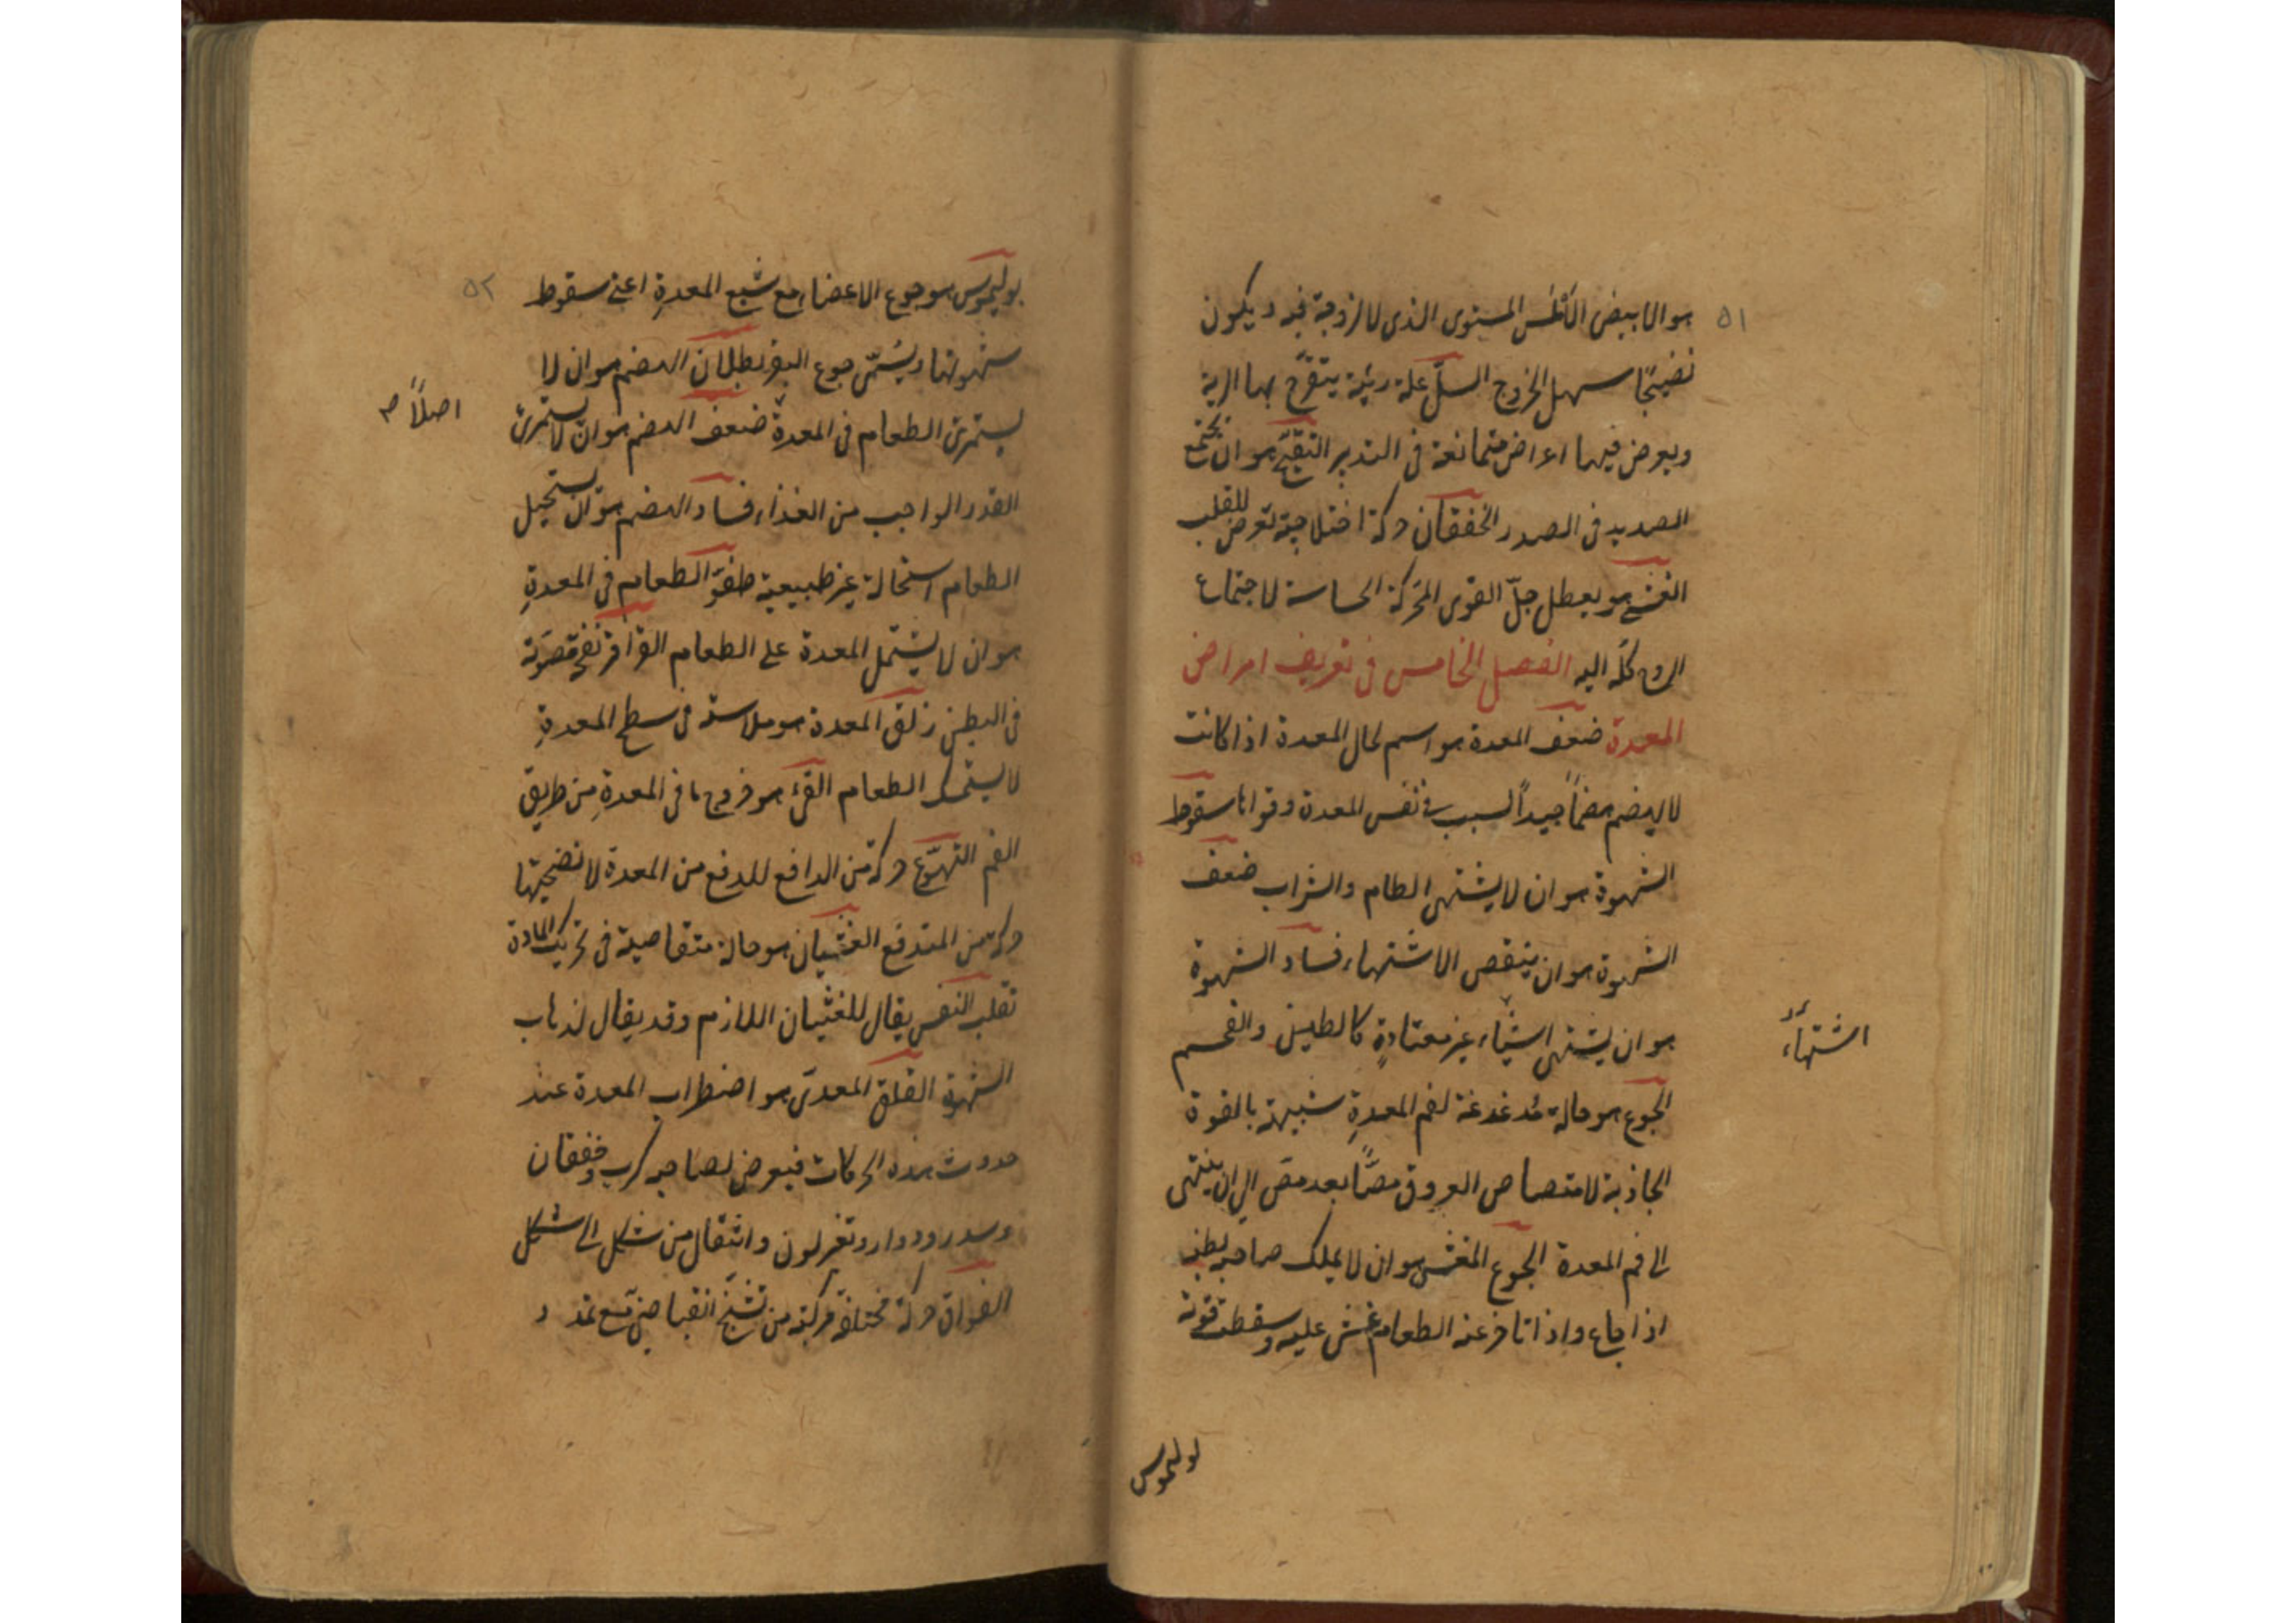 ٥١
هو الابيض الأملس المستوى الذى لا لزوجة فيه ويكون
نضيجًا سهل الخروج السلّ علة رئية يتقرّح بها الرية
ويعرض فيها اعراض متمانعة فى التدبير التقيّح هو ان يجتمع
الصديد فى الصدر الخفقان حركة اختلاجية تعرض للقلب
الغشى هو يعطل جلّ القوى المحركة الحاسة لاجتماع
الروح كلّه اليه الفصل الخامس فى تعريف امراض
المعدة ضعف المعدة هو اسم لحال المعدة اذا كانت
لا يهضم هضماً جيداً لسبب فى نفس المعدة وقواها سقوط
الشهوة هو ان لا يشتهى الطام والشراب ضعف
الشهوة هو ان ينقص الاشتهاء فساد الشهوة
هو ان يشتهى اشياء غير معتادةٍ كالطين والفحم
اشتهاء
الجوع هو حالة مُدغدغة لفم المعدةِ شبيهة بالقوة
الجاذبة لامتصاص العروق مصًّا بعد مصّ الى ان ينتهى
الى فم المعدة الجوع المغشى هو ان لا يملك صاحبه بطنه
اذا جاع واذا تاخر عنه الطعام غشى عليه وسقطت قوته
بوليموس
٥٢
بوليموس هو جوع الاعضاء مع شبع المعدةِ اعنى سقوط
شهوتها ويُسمّى جوع البقر بطلان الهضم هو ان لا
يستمرئ الطعام فى المعدةِ ضعف الهضم هو ان لا يستمرئ
اصلاً صح
القدر الواجب من الغذاء فساد الهضم هو ان يستحيل
الطعام استحالة غير طبيعية طفوّ الطعام فى المعدةِ
هو ان لا يشتمل المعدة على الطعام القراقر نفخ مصَوّتة
فى البطن زلق المعدة هو ملاسته فى سطح المعدةِ
لا يستمسك الطعام القئ هو خروج ما فى المعدةِ من طريق
الفم التهوّع حركة من الدافع للدفع من المعدة لا تصحبها
حركة من المندفع الغثيان هو حالة متقاصية فى تحريك المادة
تقلب النفس يقال للغثيان اللازم وقد يقال لذهاب
الشهوة القلق المعدىّ هو اضطراب المعدة عند
حدوث هذه الحركات فيعرض لصاحبه كرب وخفقان
وسدر ودوار وتغير لون وانتقال من شكل الى شكل
الفواق حركة مختلفة مركبة من تشنّج انقباضىّ مع تمدد